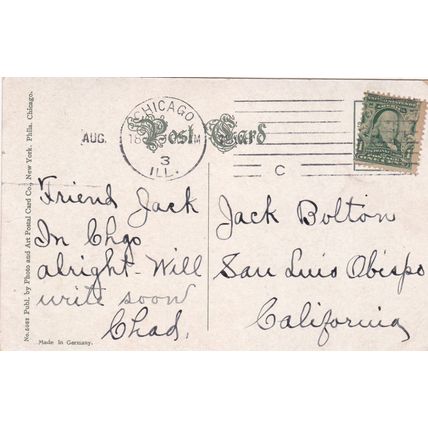 CHICAGO
AUG. 18
3
ILL.
Post Card
C
Friend Jack
In Chgo
alright - Will
write soon
Chad.
Jack Bolton
San Luis Obispo
California
No. 6063 Publ. by Photo and Art Postal Card Co., New York. Phila. Chicago.
Made in Germany.